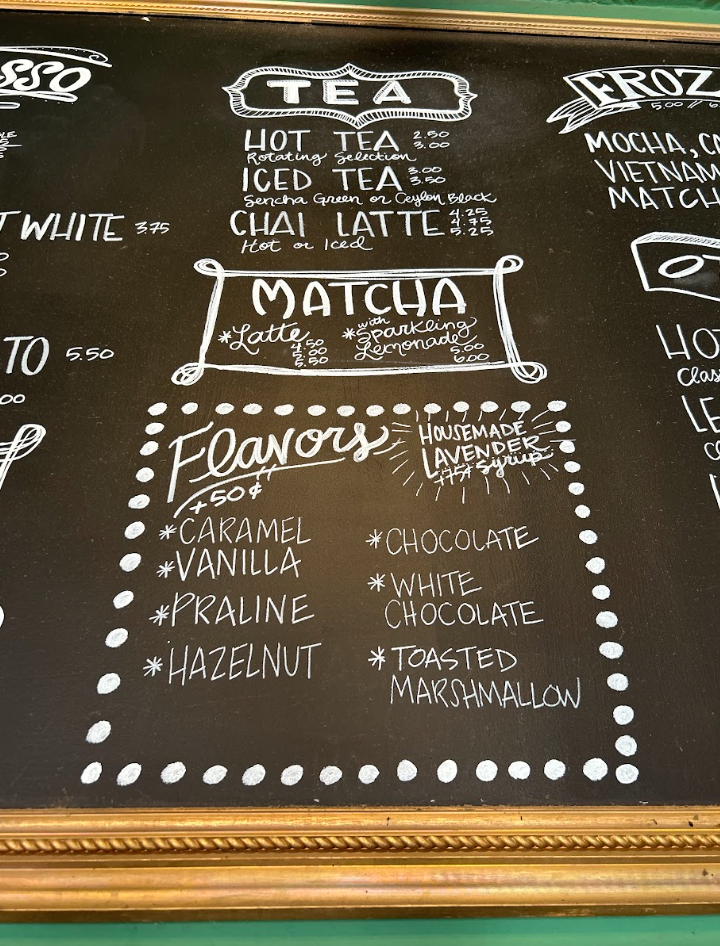 TEA
HOT TEA 2.50
3.00
Rotating Selection
ICED TEA 3.00
3.50
Sencha Green or Ceylon Black
CHAI LATTE 4.25
4.75
5.25
Hot or Iced
MATCHA
*Latte
4.50
5.00
5.50
*with
Sparkling
Lemonade
5.00
6.00
Flavors
+50¢
HOUSEMADE
LAVENDER
+75¢ Syrup
*CARAMEL
*VANILLA
*PRALINE
*HAZELNUT
*CHOCOLATE
*WHITE
CHOCOLATE
*TOASTED
MARSHMALLOW
SSO
T WHITE 3.75
TO 5.50
FROZ
5.00 // 6.
MOCHA, CA
VIETNAM
MATCH
OT
HO
Clas
LE